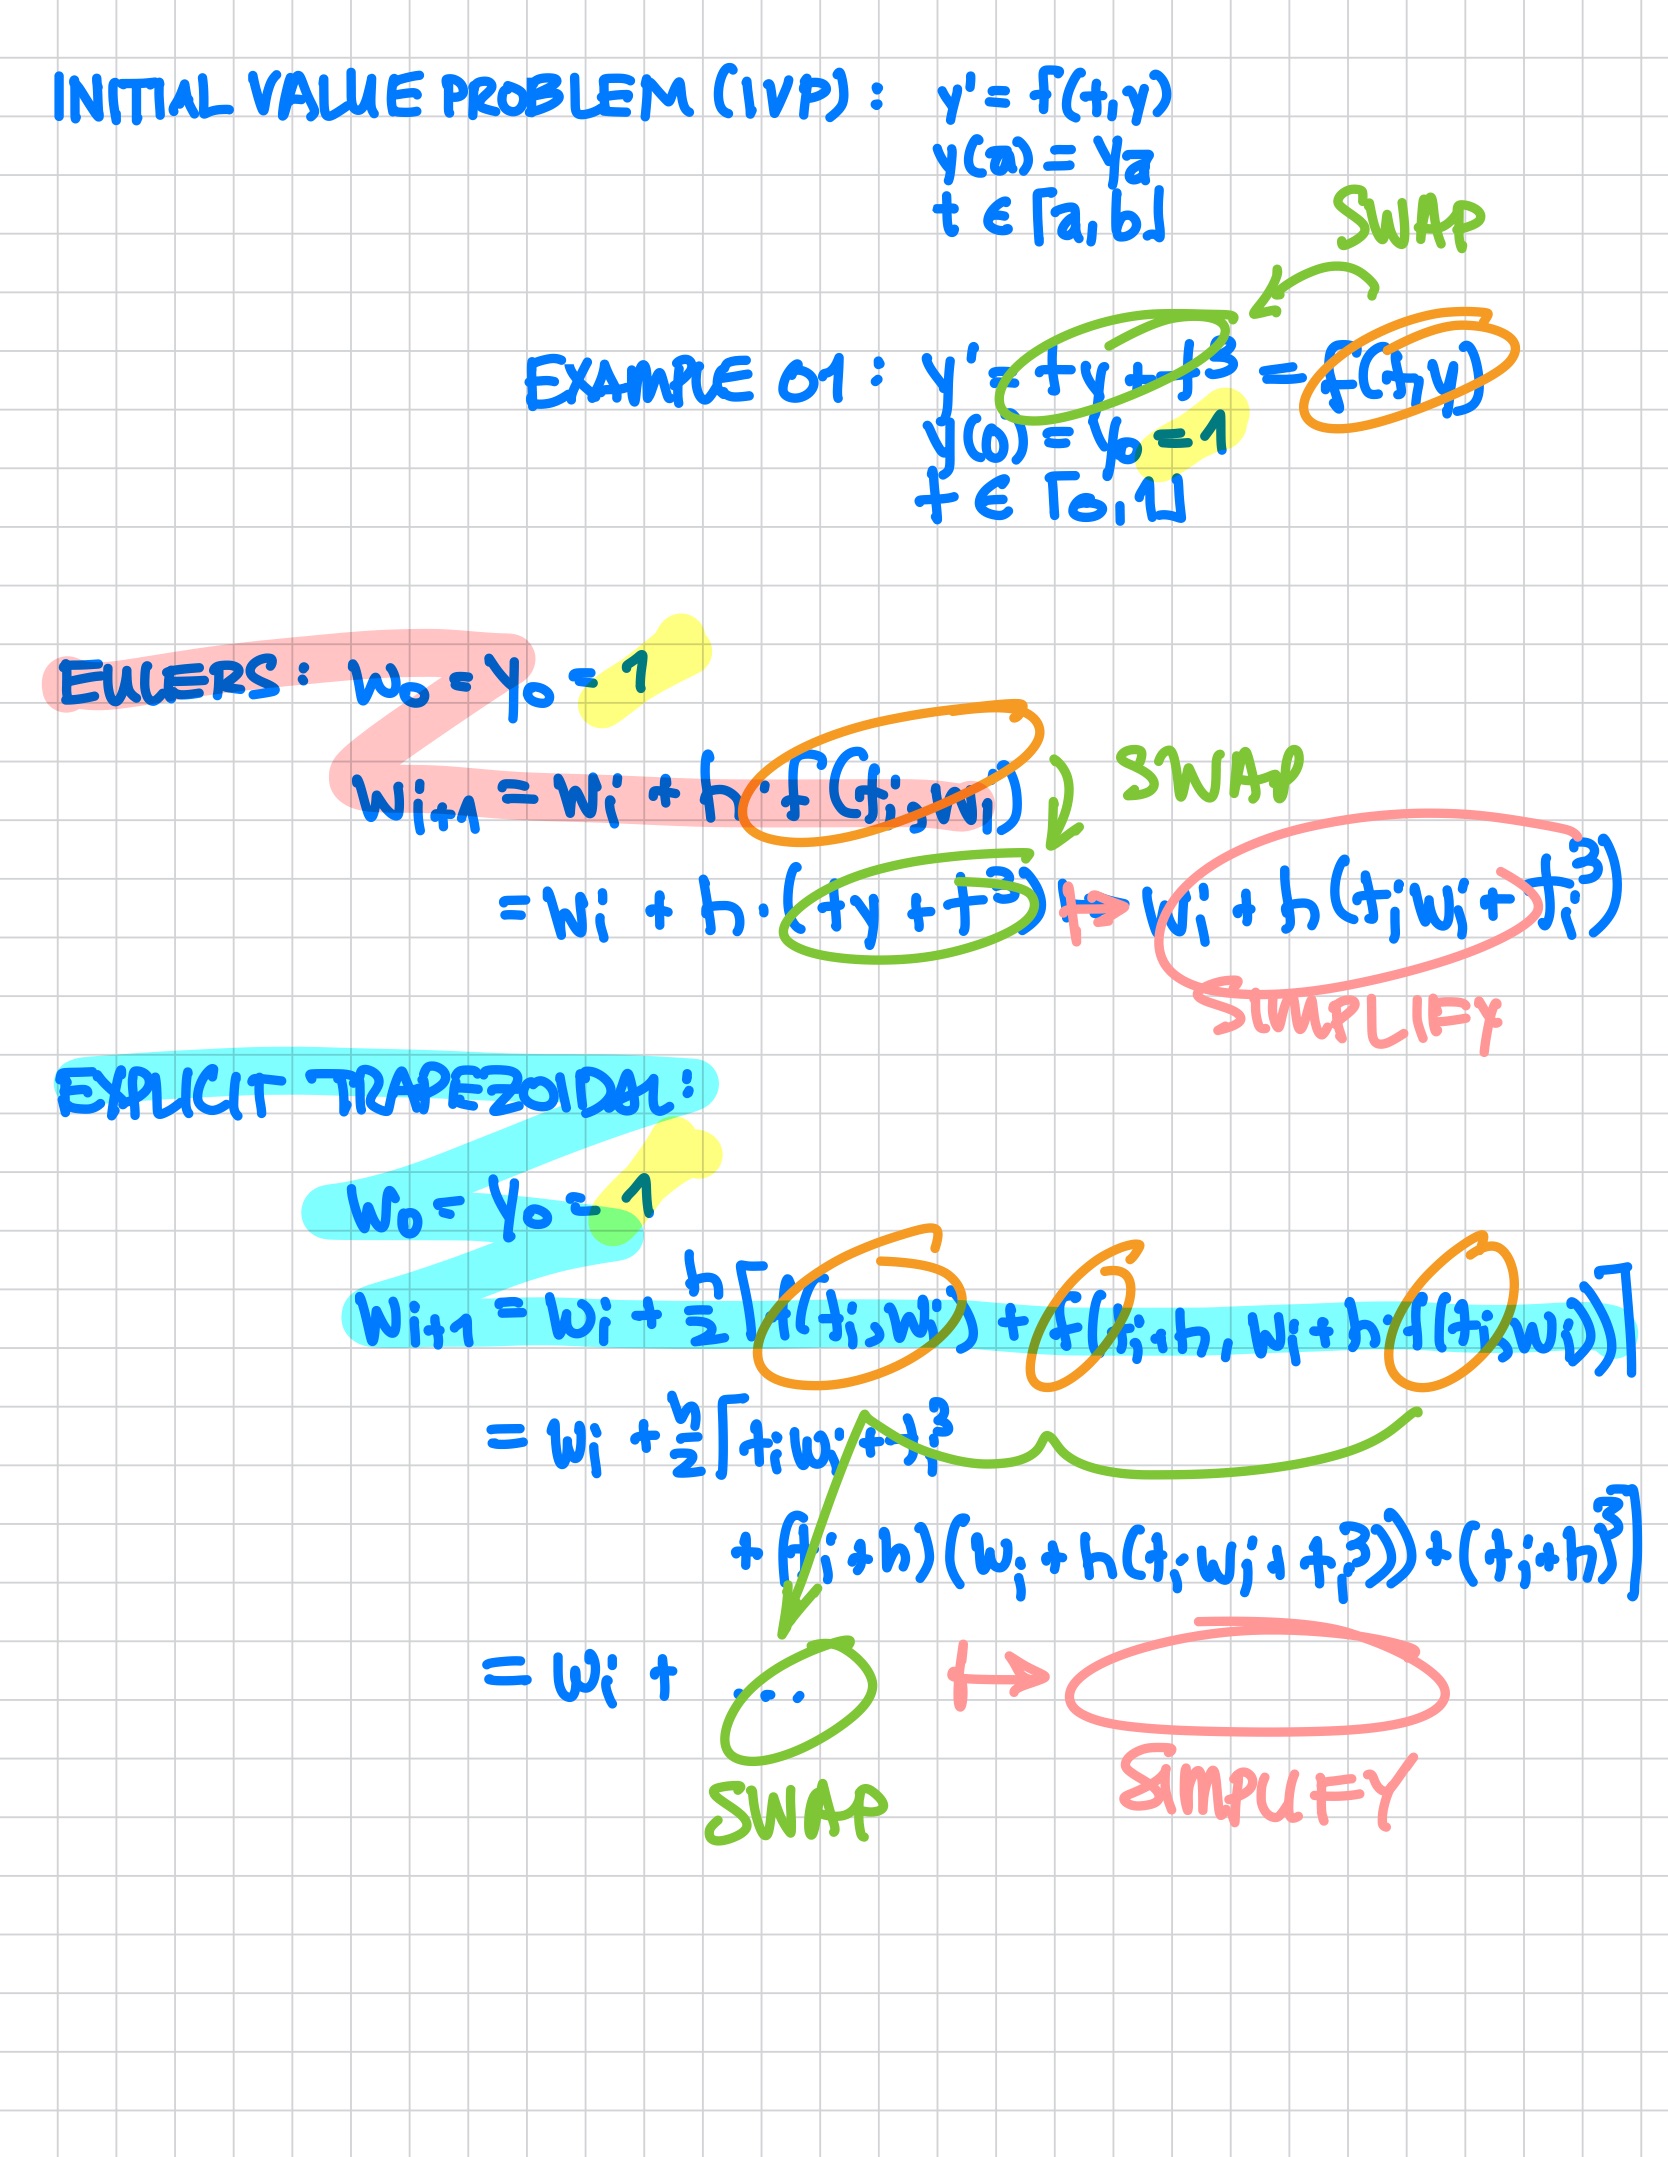 INITIAL VALUE PROBLEM (IVP) : y' = f(t,y)
y(a) = ya
t ∈ [a,b]
SWAP
EXAMPLE 01 : y' = ty + t³ = f(t,y)
y(0) = y₀ = 1
t ∈ [0,1]
EULERS : w₀ = y₀ = 1
wᵢ₊₁ = wᵢ + h · f(tᵢ,wᵢ)
SWAP
= wᵢ + h · (ty + t³) ↦ wᵢ + h(tᵢwᵢ + tᵢ³)
SIMPLIFY
EXPLICIT TRAPEZOIDAL :
w₀ = y₀ = 1
wᵢ₊₁ = wᵢ + h/2 [f(tᵢ,wᵢ) + f(tᵢ+h, wᵢ+h·f(tᵢ,wᵢ))]
= wᵢ + h/2 [tᵢwᵢ + tᵢ³
+ (tᵢ+h)(wᵢ + h(tᵢ·wᵢ + tᵢ³)) + (tᵢ+h)³]
= wᵢ + ... ↦
SWAP SIMPLIFY